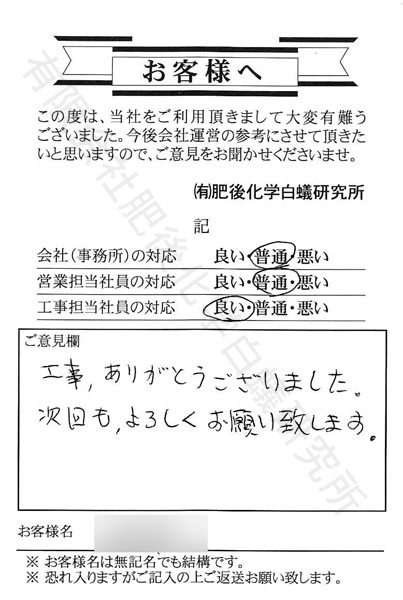 お客様へ
この度は、当社をご利用頂きまして大変有難う
ございました。今後会社運営の参考にさせて頂きた
いと思いますので、ご意見をお聞かせくださいませ。
㈲肥後化学白蟻研究所
記
会社（事務所）の対応 良い・普通・悪い
営業担当社員の対応 良い・普通・悪い
工事担当社員の対応 良い・普通・悪い
ご意見欄
工事，ありがとうございました。
次回も，よろしくお願い致します。
お客様名
※ お客様名は無記名でも結構です。
※ 恐れ入りますがご記入の上ご返送お願い致します。
有限会社肥後化学白蟻研究所